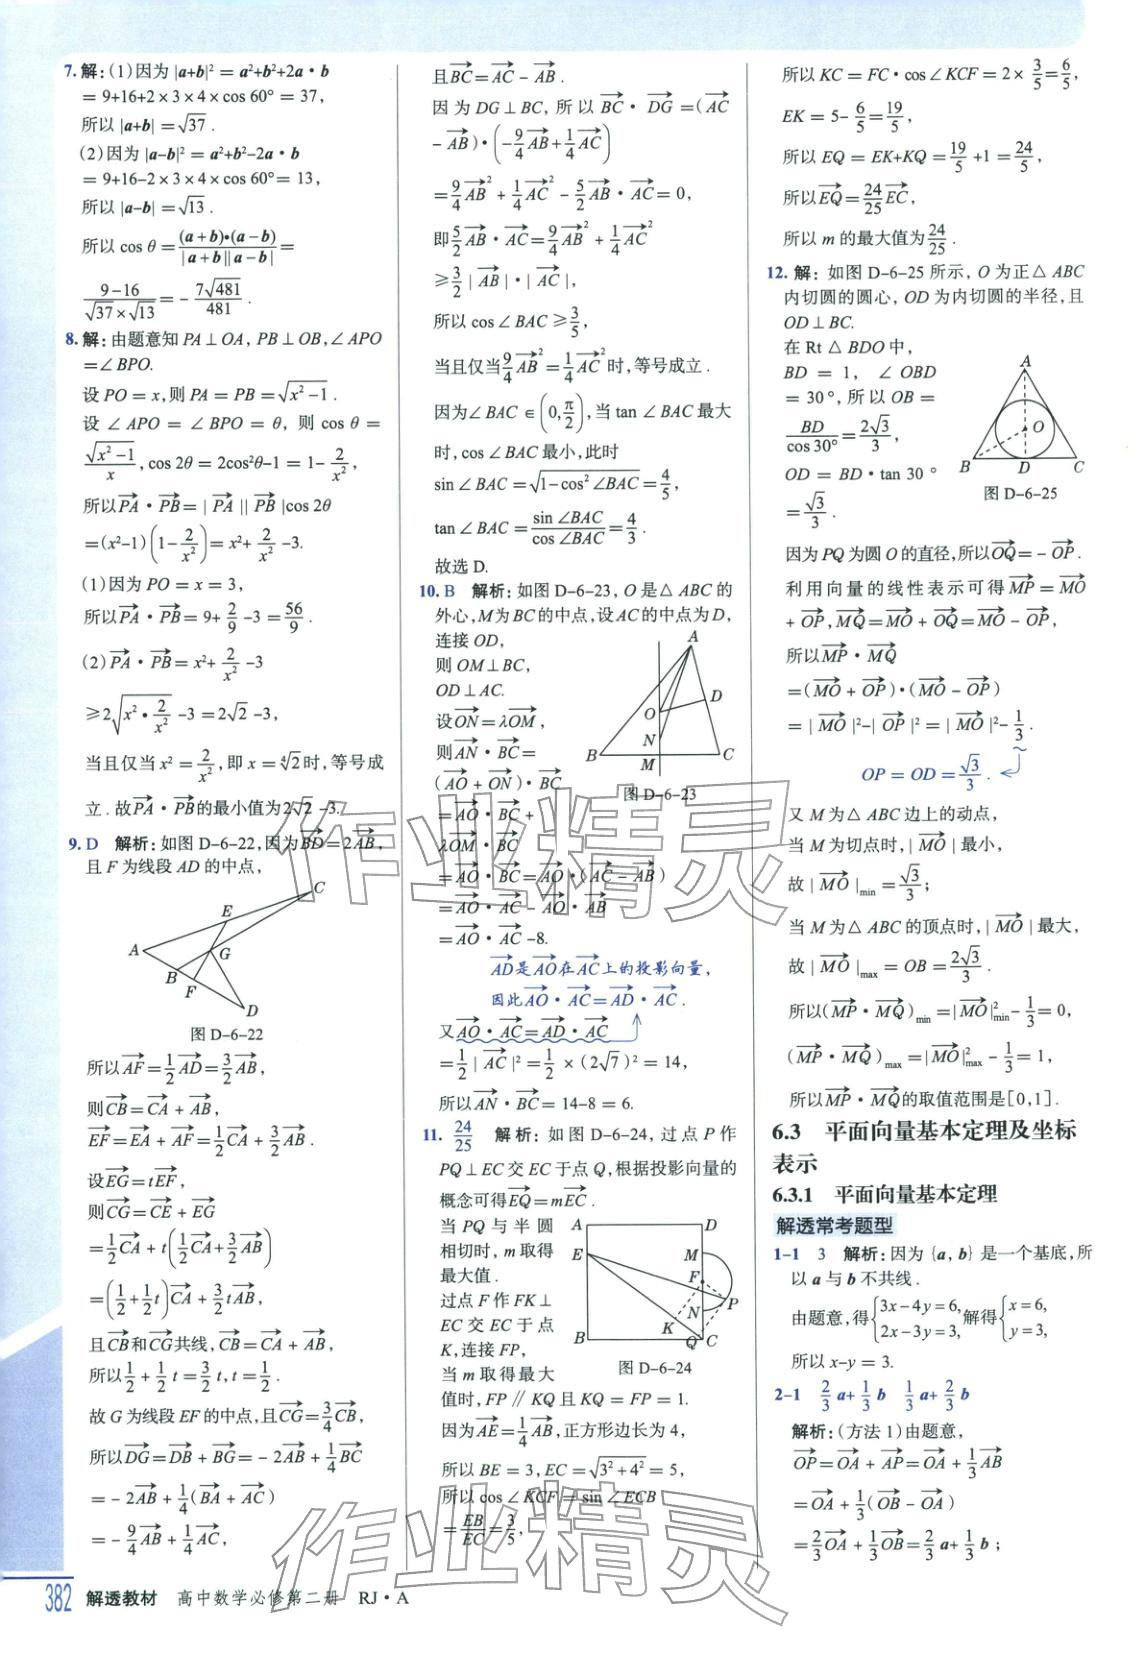 7. 解:(1)因为 |a+b|² = a²+b²+2a·b
= 9+16+2×3×4×cos 60° = 37,
所以 |a+b| = √37 .
(2)因为 |a-b|² = a²+b²-2a·b
= 9+16-2×3×4×cos 60°= 13,
所以 |a-b| = √13 .
所以 cos θ = (a+b)·(a-b)/|a+b||a-b| =
9-16/√37×√13 = - 7√481/481 .
8. 解:由题意知 PA⊥OA, PB⊥OB,∠APO
=∠BPO.
设 PO = x,则 PA = PB = √x²-1 .
设 ∠APO = ∠BPO = θ, 则 cos θ =
√x²-1/x, cos 2θ = 2cos²θ-1 = 1- 2/x²,
所以PA·PB= |PA||PB|cos 2θ
=(x²-1)(1- 2/x²)= x²+ 2/x² -3.
(1)因为 PO = x = 3,
所以PA·PB= 9+ 2/9 -3 = 56/9 .
(2)PA·PB= x²+ 2/x² -3
≥2√x²·2/x² -3 = 2√2 -3,
当且仅当 x² = 2/x², 即 x = ∜2时,等号成
立.故PA·PB的最小值为2√2 -3.
9. D 解析:如图 D-6-22,因为BD= 2AB,
且 F 为线段 AD 的中点,
A
B
C
D
E
F
G
图 D-6-22
所以AF= 1/2 AD= 3/2 AB,
则CB=CA+AB,
EF=EA+AF= 1/2 CA+ 3/2 AB.
设EG= tEF,
则CG=CE+EG
= 1/2 CA+ t(1/2 CA+ 3/2 AB)
=(1/2 + 1/2 t)CA+ 3/2 tAB,
且CB和CG共线, CB=CA+AB,
所以 1/2 + 1/2 t = 3/2 t, t = 1/2 .
故 G 为线段 EF 的中点,且CG= 3/4 CB,
所以DG=DB+BG= -2AB+ 1/4 BC
= -2AB+ 1/4 (BA+AC)
= - 9/4 AB+ 1/4 AC,
且BC=AC-AB.
因为 DG⊥BC, 所以 BC·DG=(AC
-AB)·(- 9/4 AB+ 1/4 AC)
= 9/4 AB² + 1/4 AC² - 5/2 AB·AC= 0,
即 5/2 AB·AC= 9/4 AB² + 1/4 AC²
≥ 3/2 |AB|·|AC|,
所以 cos∠BAC≥ 3/5,
当且仅当 9/4 AB² = 1/4 AC²时,等号成立.
因为∠BAC∈(0, π/2),当 tan∠BAC 最大
时, cos∠BAC 最小,此时
sin∠BAC= √1-cos²∠BAC= 4/5,
tan∠BAC= sin∠BAC/cos∠BAC = 4/3 .
故选 D.
10. B 解析:如图 D-6-23, O 是△ABC 的
外心,M为BC的中点,设AC的中点为D,
连接 OD,
则 OM⊥BC,
OD⊥AC.
设ON=λOM,
则AN·BC=
(AO+ON)·BC
=AO·BC+
λOM·BC
=AO·BC=AO·(AC-AB)
=AO·AC-AO·AB
=AO·AC-8.
A
D
O
N
B
M
C
图 D-6-23
AD是AO在AC上的投影向量,
因此AO·AC=AD·AC.
又AO·AC=AD·AC
= 1/2 |AC|² = 1/2 ×(2√7)² = 14,
所以AN·BC= 14-8 = 6.
11. 24/25 解析: 如图 D-6-24, 过点 P 作
PQ⊥EC交EC于点Q,根据投影向量的
概念可得EQ= mEC.
当 PQ 与半圆
相切时, m 取得
最大值.
过点 F 作 FK⊥
EC 交 EC 于点
K,连接 FP,
当 m 取得最大
A
D
E
M
F
P
N
K
B
Q
C
图 D-6-24
值时, FP∥KQ 且 KQ = FP = 1.
因为AE= 1/4 AB,正方形边长为 4,
所以 BE = 3, EC= √3²+4² = 5,
所以 cos∠KCF = sin∠ECB
= EB/EC = 3/5,
所以 KC = FC·cos∠KCF = 2× 3/5 = 6/5,
EK = 5- 6/5 = 19/5,
所以 EQ = EK+KQ = 19/5 +1 = 24/5,
所以EQ= 24/25 EC,
所以 m 的最大值为 24/25 .
12. 解: 如图 D-6-25 所示, O 为正△ABC
内切圆的圆心, OD 为内切圆的半径,且
OD⊥BC.
在 Rt△BDO 中,
BD = 1, ∠OBD
= 30°,所以 OB =
BD/cos 30° = 2√3/3,
OD = BD·tan 30°
= √3/3 .
A
O
B
D
C
图 D-6-25
因为 PQ 为圆 O 的直径,所以OQ= -OP.
利用向量的线性表示可得MP=MO
+OP,MQ=MO+OQ=MO-OP,
所以MP·MQ
=(MO+OP)·(MO-OP)
= |MO|²-|OP|² = |MO|²- 1/3 .
OP = OD = √3/3 .
又 M 为△ABC 边上的动点,
当 M 为切点时, |MO|最小,
故|MO|min = √3/3;
当 M 为△ABC 的顶点时, |MO|最大,
故|MO|max = OB = 2√3/3 .
所以(MP·MQ)min = |MO|²min - 1/3 = 0,
(MP·MQ)max = |MO|²max - 1/3 = 1,
所以MP·MQ的取值范围是[0,1].
6.3 平面向量基本定理及坐标
表示
6.3.1 平面向量基本定理
解透常考题型
1-1 3 解析:因为{a, b}是一个基底,所
以 a 与 b 不共线.
由题意,得{3x-4y=6, 2x-3y=3, 解得{x=6, y=3,
所以 x-y = 3.
2-1 2/3 a+ 1/3 b 1/3 a+ 2/3 b
解析:(方法 1)由题意,
OP=OA+AP=OA+ 1/3 AB
=OA+ 1/3 (OB-OA)
= 2/3 OA+ 1/3 OB= 2/3 a+ 1/3 b;
作业精灵
作业精灵
382 解透教材 高中数学必修第二册 RJ·A